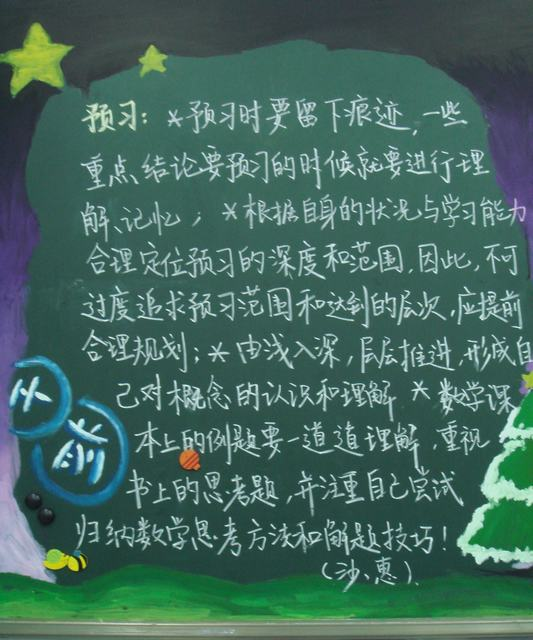 预习：*预习时要留下痕迹，一些
重点、结论要预习的时候就要进行理
解、记忆；*根据自身的状况与学习能力
合理定位预习的深度和范围，因此，不可
过度追求预习范围和达到的层次，应提前
合理规划；*由浅入深，层层推进，形成自
己对概念的认识和理解 *数学课
本上的例题要一道道理解，重视
书上的思考题，并注重自己尝试
归纳数学思考方法和解题技巧！
（沙、惠）
前